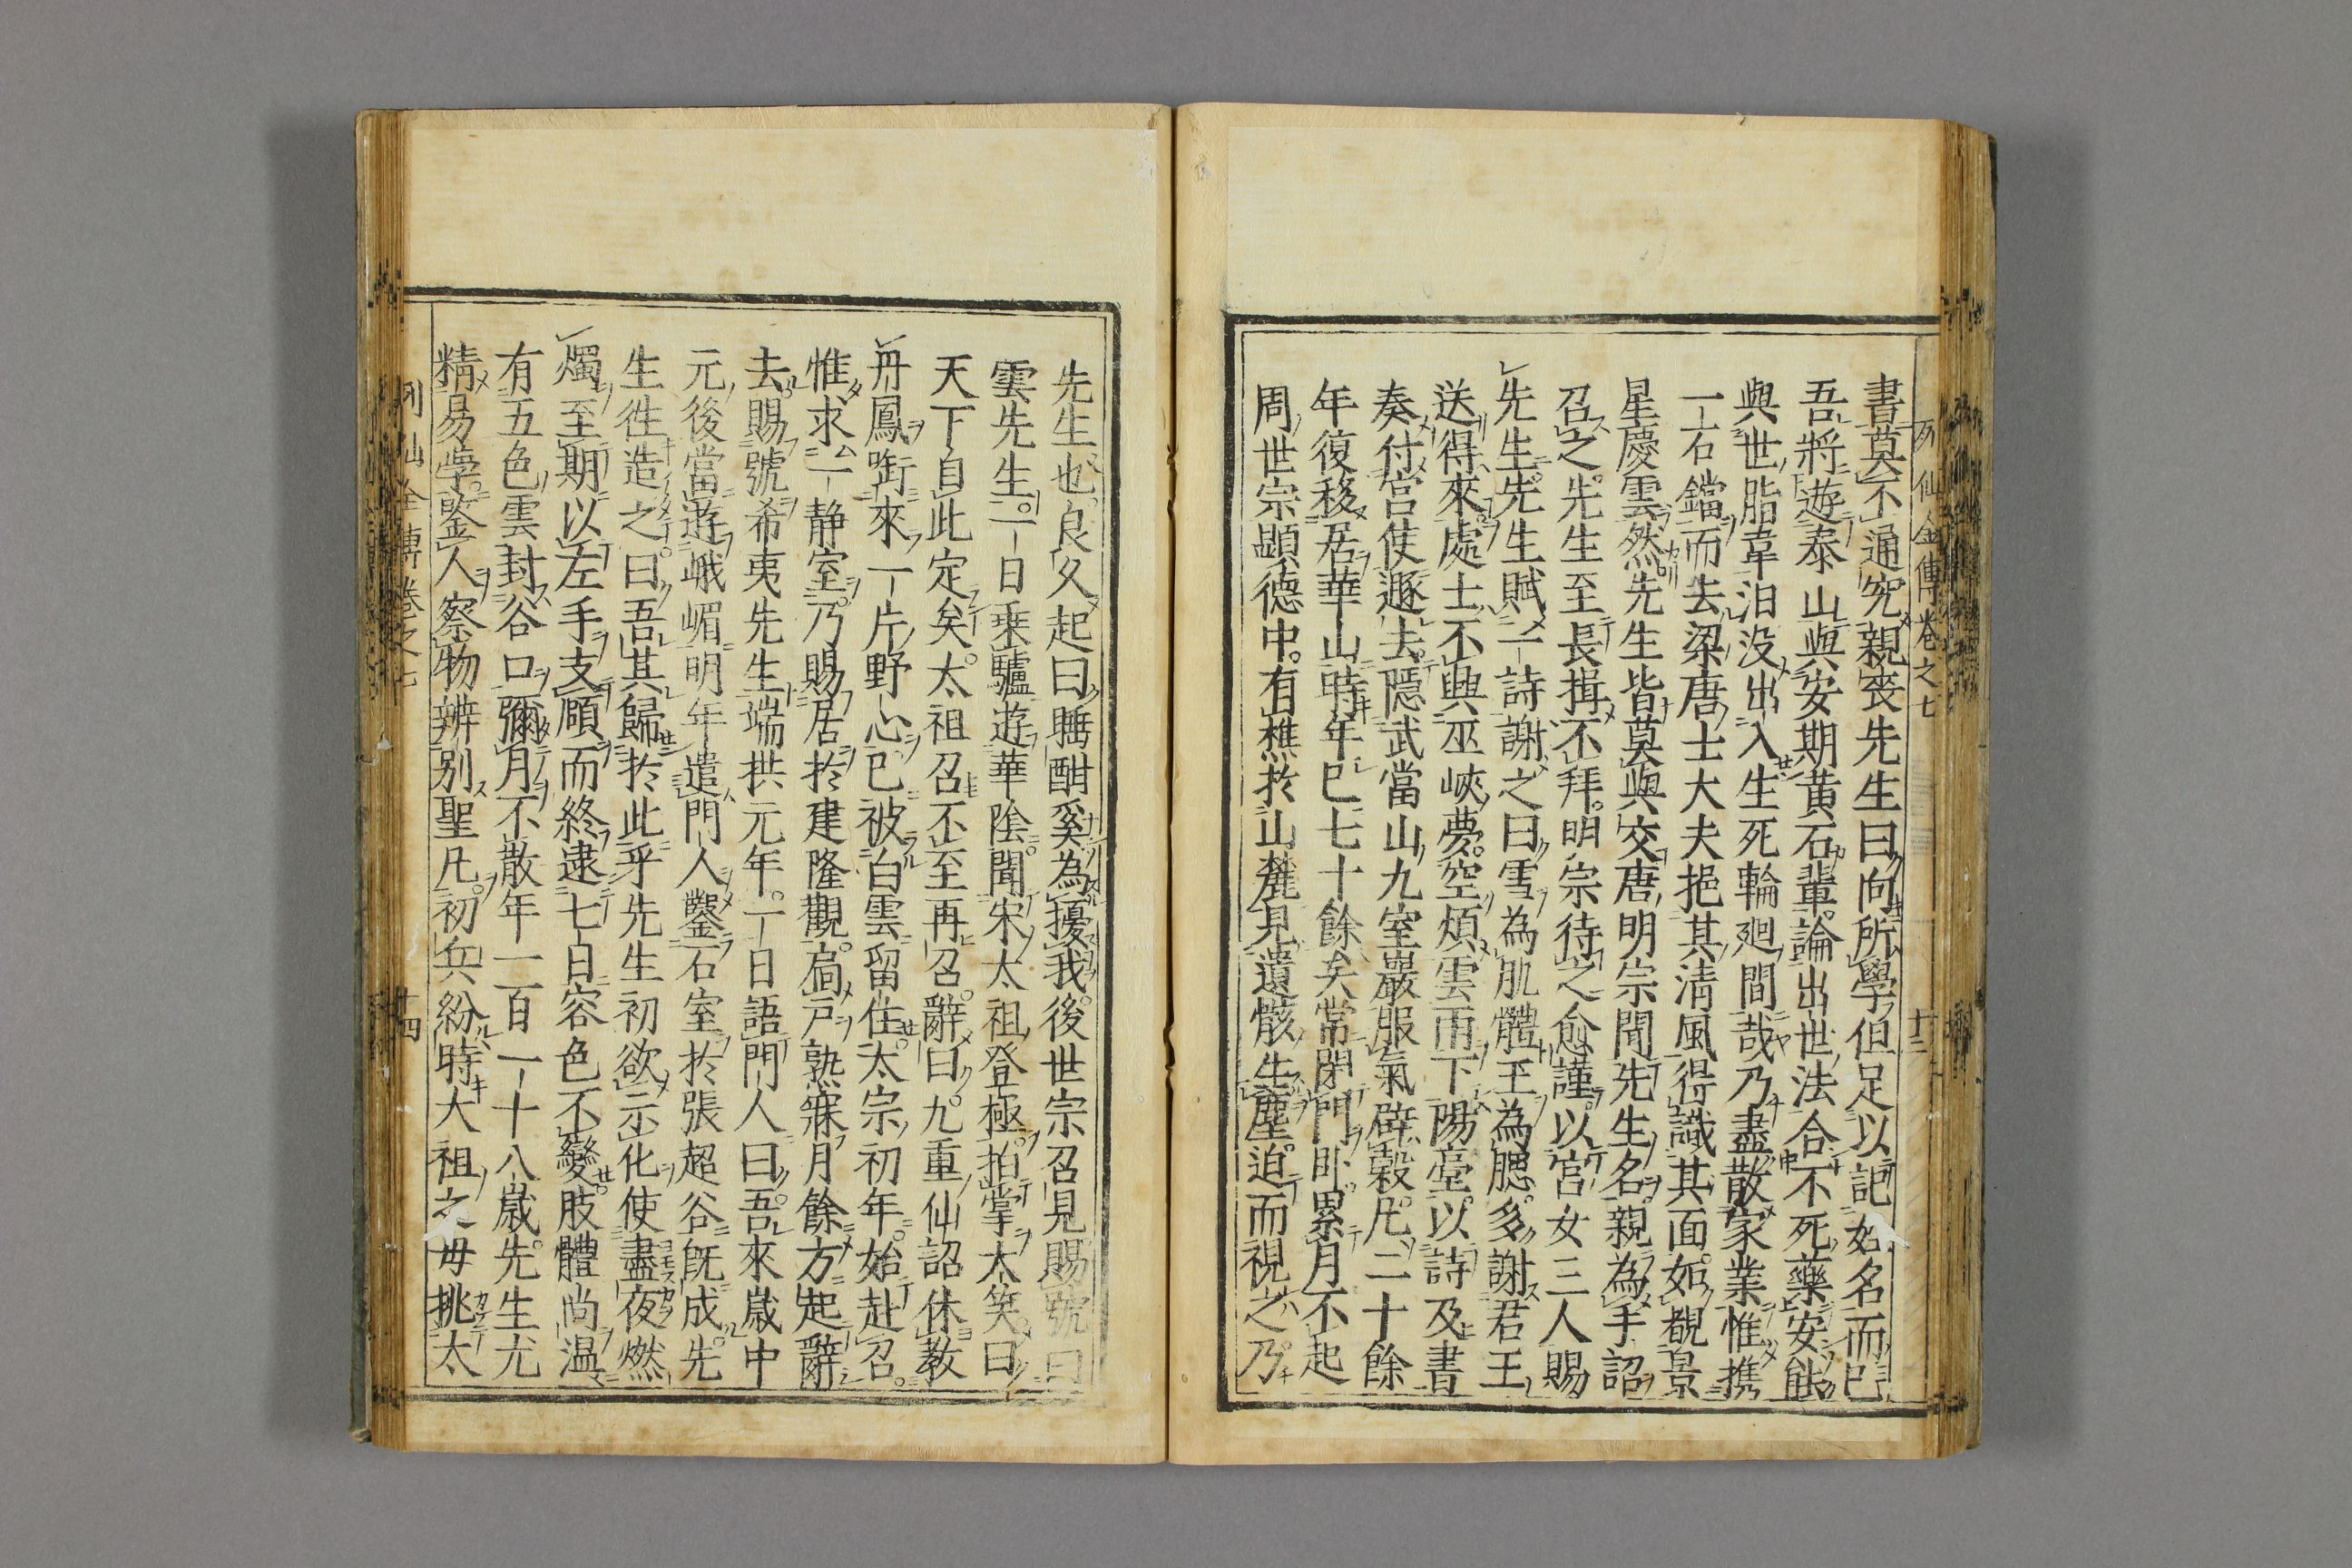 列仙全傳卷之七
十三
書莫不通究親喪先生曰向所學但足以記姓名而已
吾將遊泰山與安期黄石輩論出世法合不死藥安能
與世脂韋汨没出入生死輪廻間哉乃盡散家業惟携
一石鐺而去梁唐士大夫挹其清風得識其面如覩景
星慶雲然先生皆莫與交唐明宗聞先生名親為手詔
召之先生至長揖不拜明宗待之愈謹以宮女三人賜
先生先生賦一詩謝之曰雪為肌體玉為腮多謝君王
送得來處士不興巫峽夢空煩雲雨下陽臺以詩及書
奏付宮使遯去隱武當山九室巖服氣辟穀凡二十餘
年復移居華山時年已七十餘矣常閉門卧累月不起
周世宗顯德中有樵於山麓見遺骸生塵迫而視之乃
先生也良久起曰睡酣奚為擾我後世宗召見賜號曰
雲先生一日乘驢遊華陰聞宋太祖登極拍掌太笑曰
天下自此定矣太祖召不至再召辭曰九重仙詔休教
丹鳳啣來一片野心已被白雲留住太宗初年始赴召
惟求一静室乃賜居於建隆觀扃戸熟寐月餘方起辭
去賜號希夷先生端拱元年一日語門人曰吾來歲中
元後當遊峨嵋明年遣門人鑿石室於張超谷既成先
生徃造之曰吾其歸於此乎先生初欲示化使盡夜燃
燭至期以左手支頤而終逮七日容色不變肢體尚温
有五色雲封谷口彌月不散年一百一十八歲先生尤
精易學鑒人察物辨别聖凡初兵紛時太祖之母挑太
列仙全傳卷之七
十四